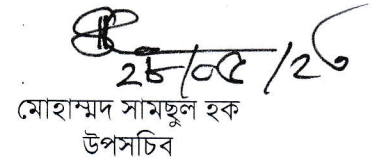 ২৮/০৫/২৩
মোহাম্মদ সামছুল হক
উপসচিব